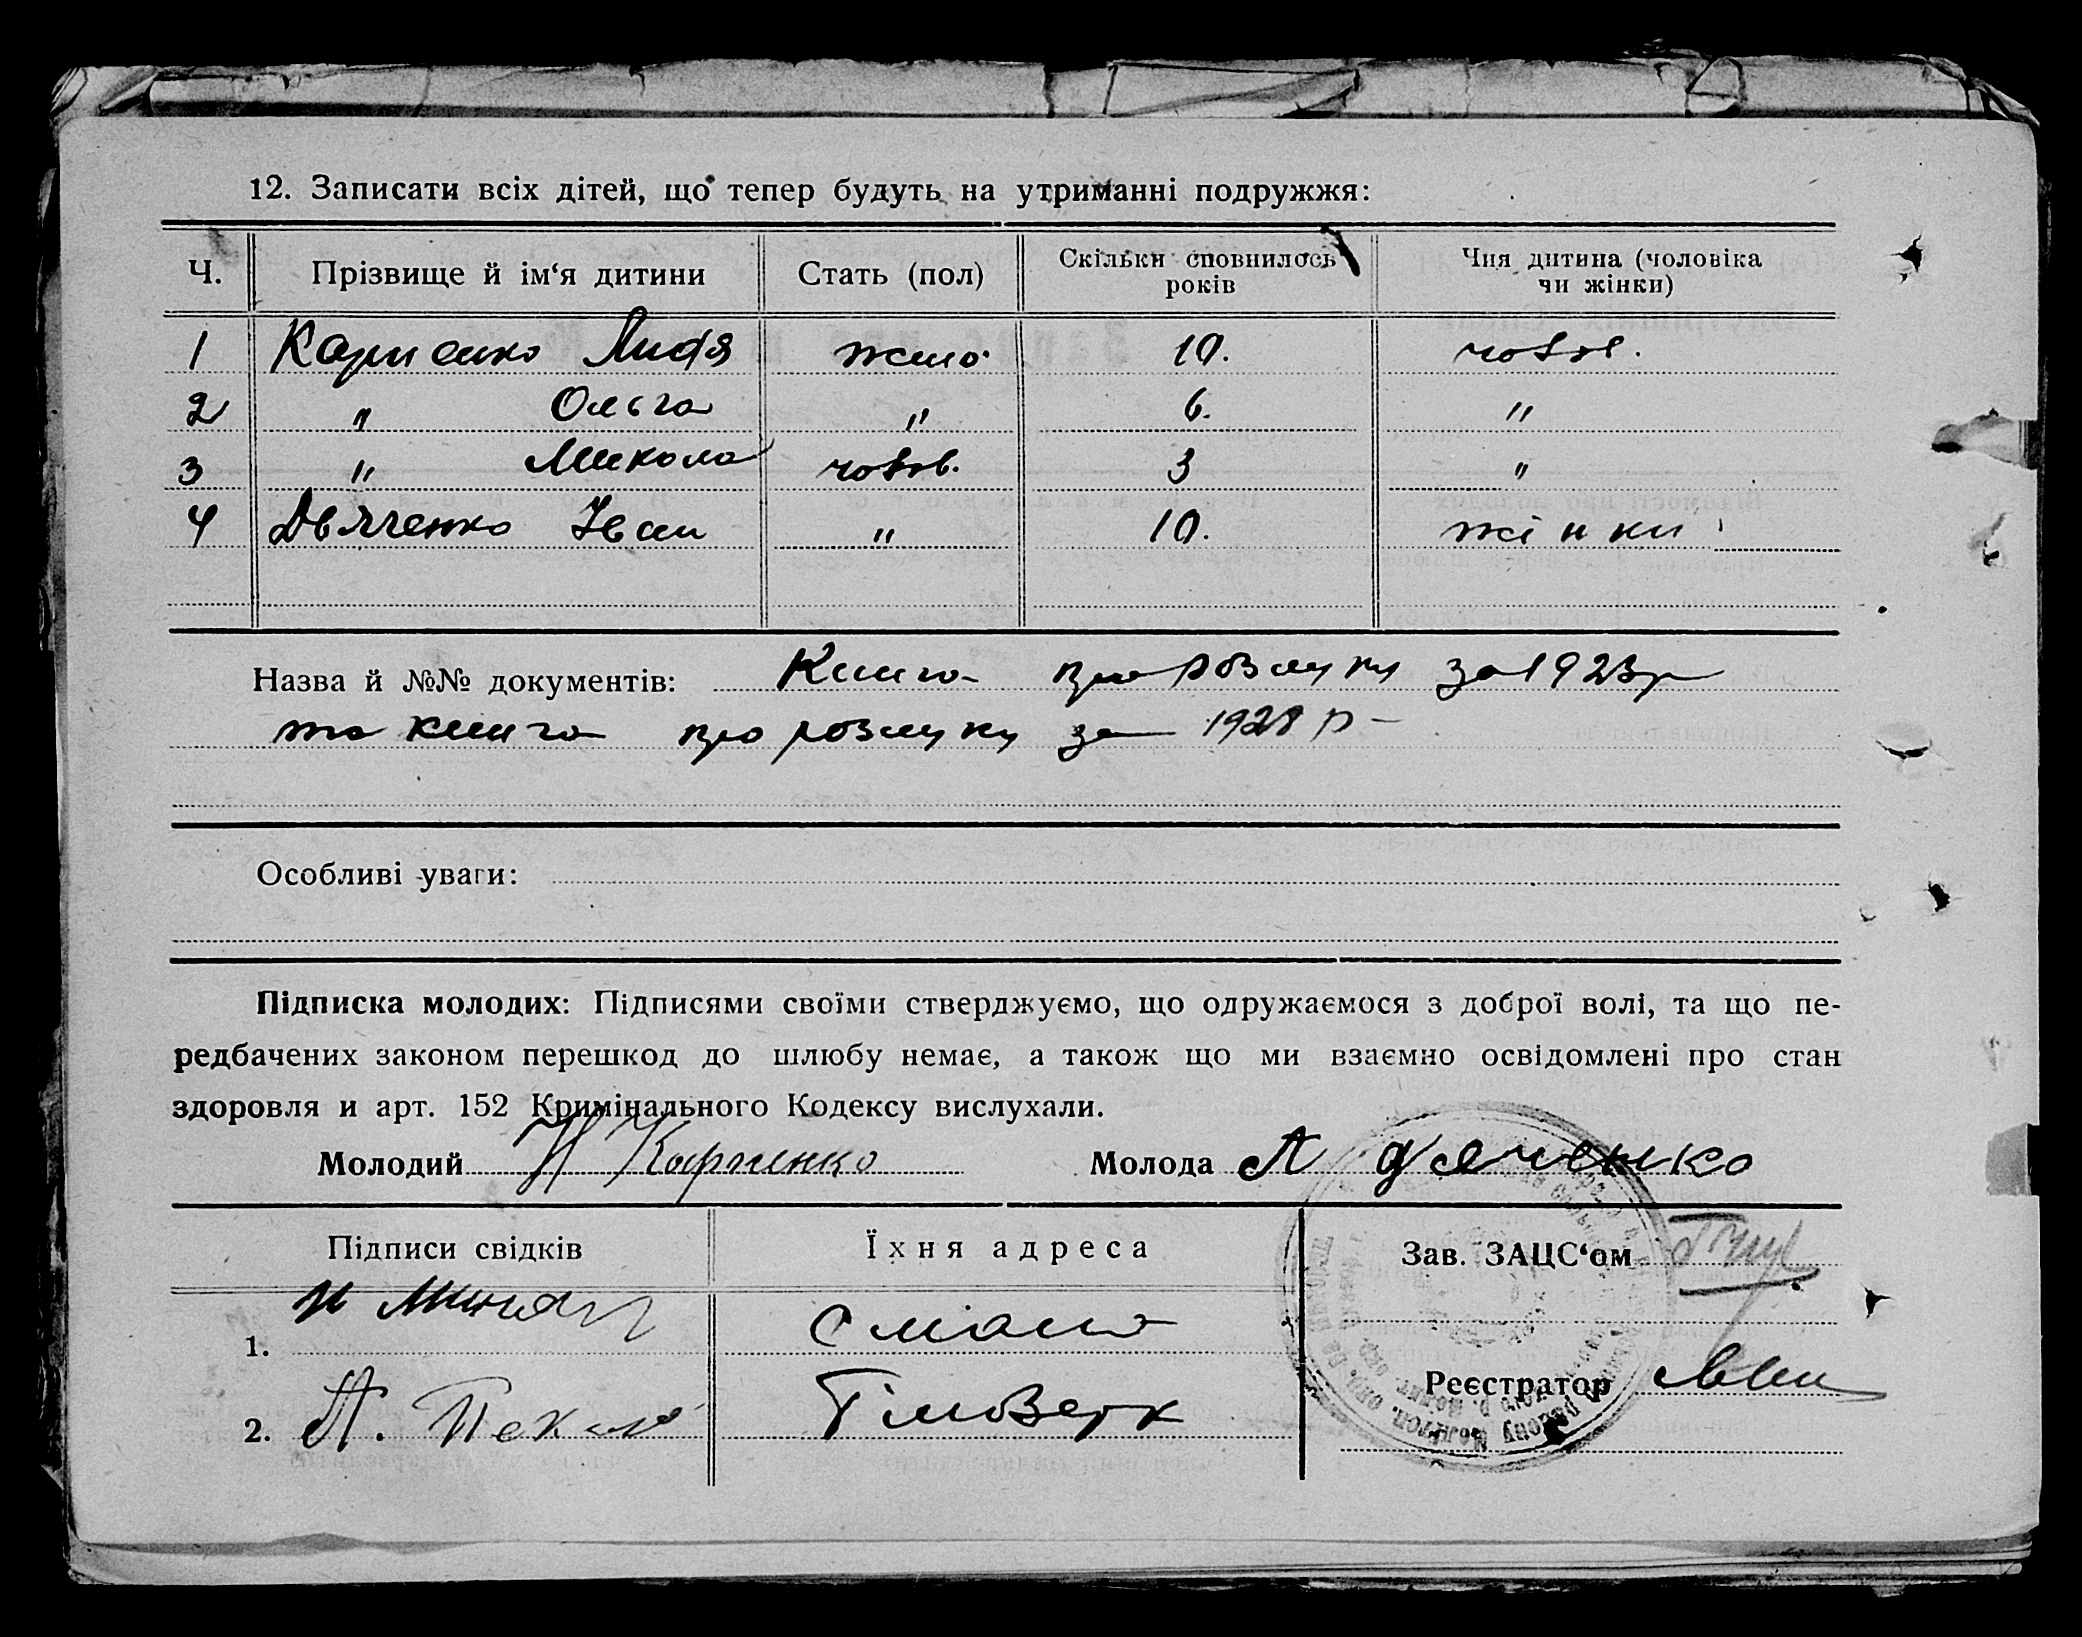 12. Записати всіх дітей, що тепер будуть на утриманні подружжя:
Ч. Прізвище й ім‘я дитини Стать (пол) Скільки сповнилось років Чия дитина (чоловіка чи жінки)
1 Карпенко Лидія жіно. 10. чолов.
2 " Ольга " 6. "
3 " Микола чолов. 3 "
4 Дьяченко Іван " 10. жінки
Назва й №№ документів: Книга про розлуку за 1923 р
та книга про розлуку за 1928 р
Особливі уваги:
Підписка молодих: Підписями своїми стверджуємо, що одружаємося з доброї волі, та що пе-
редбачених законом перешкод до шлюбу немає, а також що ми взаємно освідомлені про стан
здоровля и арт. 152 Кримінального Кодексу вислухали.
Молодий Н Карпенко Молода А дяченко
Підписи свідків Їхня адреса Зав. ЗАЦС‘ом
1.
Реєстратор
2. А.